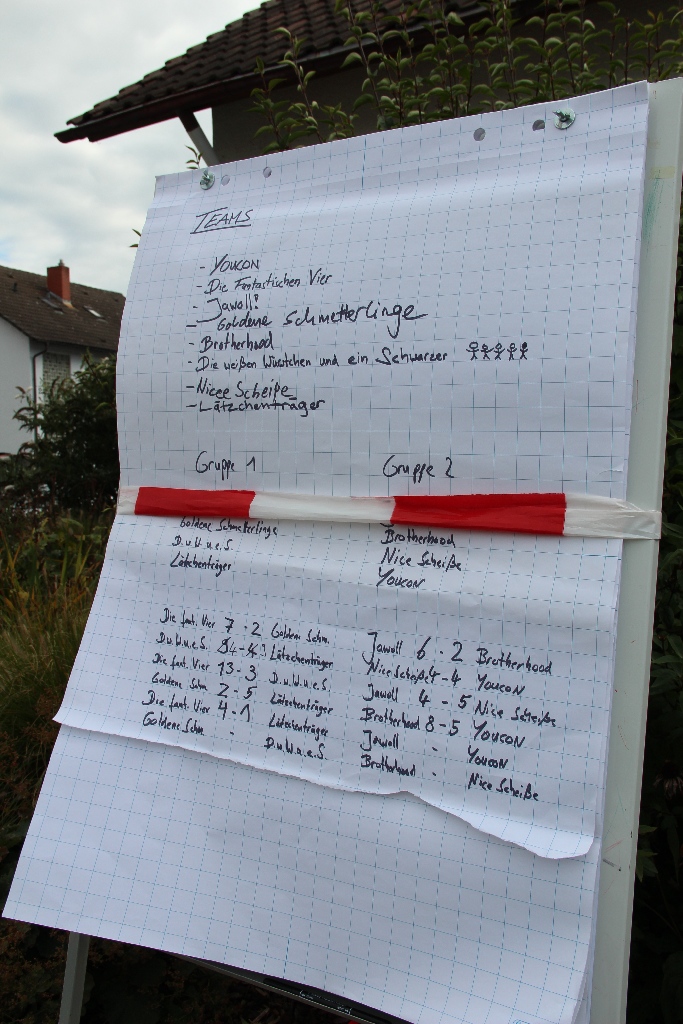 TEAMS
- YOUCON
- Die Fantastischen Vier
- Jawoll!
- Goldene Schmetterlinge
- Brotherhood
- Die weißen Würstchen und ein Schwarzer
- Nicee Scheiße
- Lätzchenträger
Gruppe 1 Gruppe 2
Goldene Schmetterlinge Brotherhood
D.w.W.u.e.S Nice Scheiße
Lätzchenträger YOUCON
Die fant. Vier 7 - 2 Goldene Schm. Jawoll 6 - 2 Brotherhood
D.w.W.u.e.S. 4-4 Lätzchenträger Nice Scheiße 4-4 YOUCON
Die fant. Vier 13 - 3 D.w.W.u.e.S. Jawoll 4 - 5 Nice Scheiße
Goldene Schm 2 - 5 Lätzchenträger Brotherhood 8 - 5 YOUCON
Die fant. Vier 4 - 1 Lätzchenträger Jawoll - YOUCON
Goldene Schm. - D.w.W.u.e.S. Brotherhood - Nice Scheiße